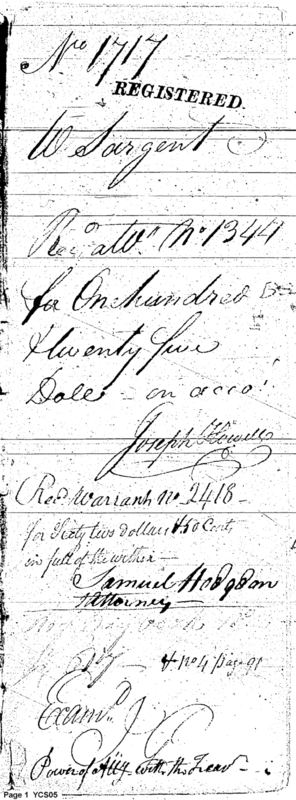 No 1717
REGISTERED.
W Sargent
Recd a Wt. No 1344
for One hundred
& twenty five
Dolls - on acco't
Joseph Howell
Recd Warrant No 2418 -
for Sixty two dollars & 50 Cents
in full of the within -
Samuel Hodgdon
Attorney -
& No 4 page 91
Examd.
Power of Atty with the Treasr -
Page 1 YCS05